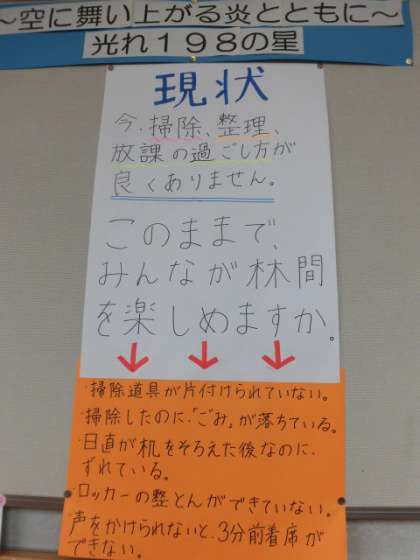 ～空に舞い上がる炎とともに～
光れ１９８の星
現状
今、掃除、整理、
放課の過ごし方が
良くありません。
このままで、
みんなが林間
を楽しめますか。
・掃除道具が片付けられていない。
・掃除したのに、「ごみ」が落ちている。
・日直が机をそろえた後なのに、
ずれている。
・ロッカーの整とんができていない。
声をかけられないと、3分前着席が
できない。